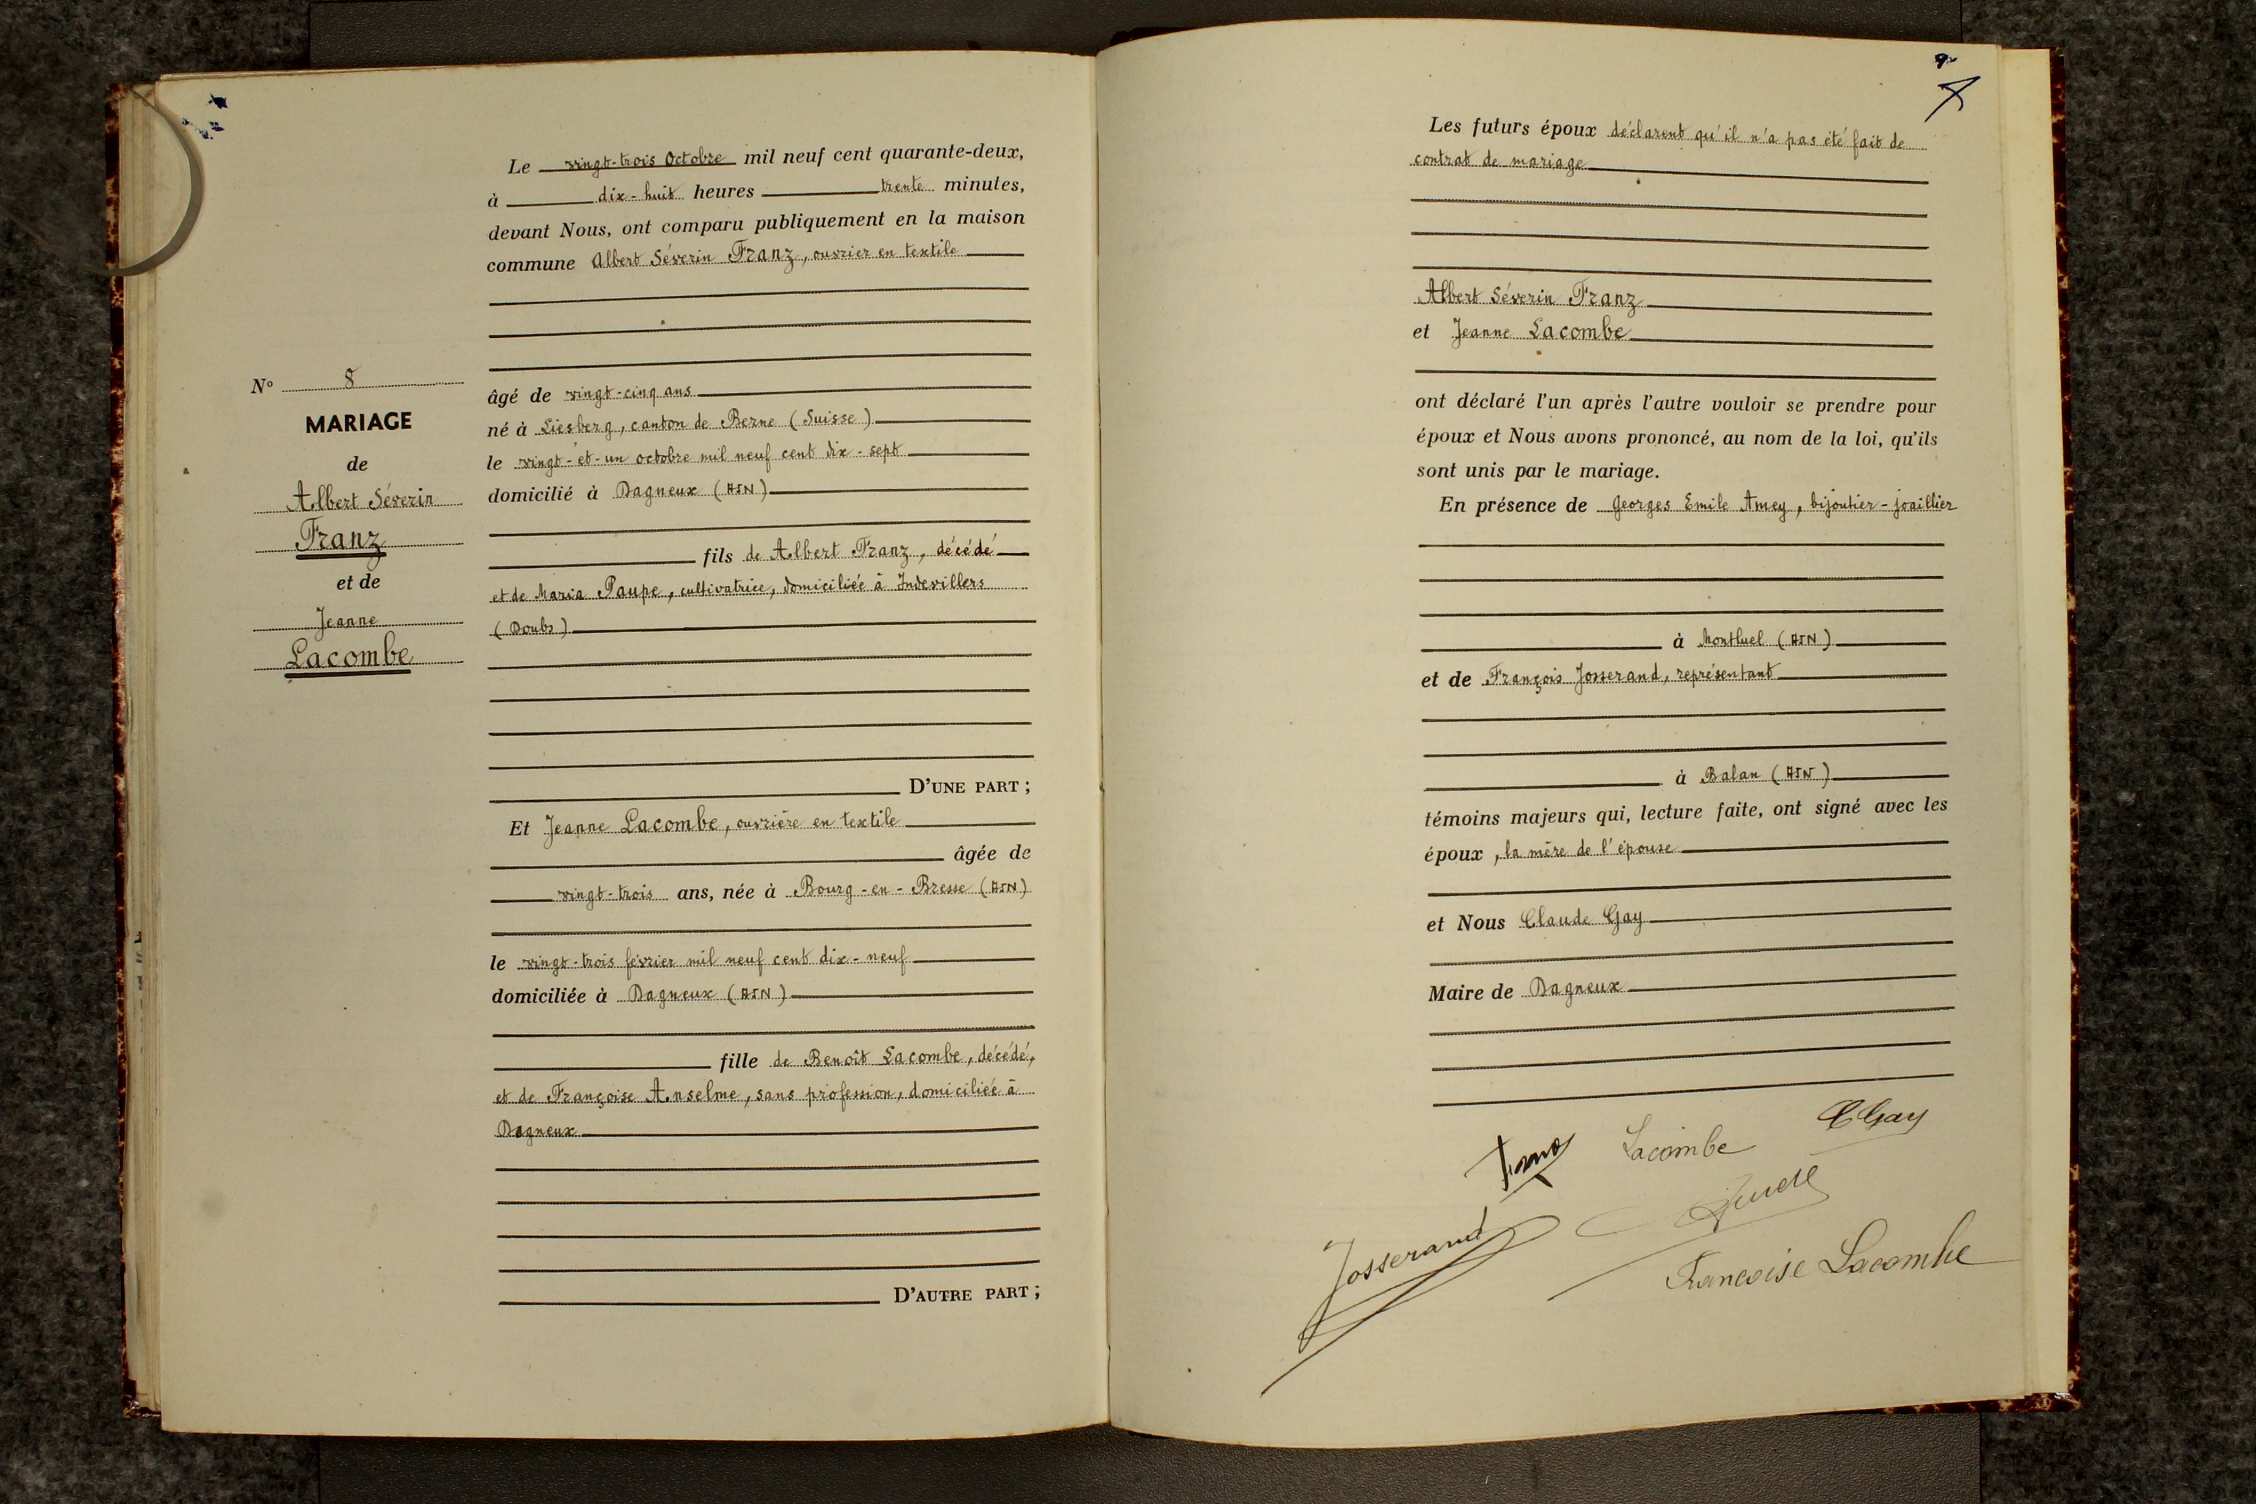 Le vingt-trois Octobre mil neuf cent quarante-deux,
à dix-huit heures trente minutes,
devant Nous, ont comparu publiquement en la maison
commune Albert Séverin Franz, ouvrier en textile
âgé de vingt-cinq ans
né à Liesberg, canton de Berne (Suisse)
le vingt-et-un octobre mil neuf cent dix-sept
domicilié à Dagneux (AIN)
fils de Albert Franz, décédé
et de Maria Paupe, cultivatrice, domiciliée à Indevillers
(Doubs)
D'UNE PART ;
Et Jeanne Lacombe, ouvrière en textile
âgée de
vingt-trois ans, née à Bourg-en-Bresse (AIN)
le vingt-trois février mil neuf cent dix-neuf
domiciliée à Dagneux (AIN)
fille de Benoît Lacombe, décédé,
et de Françoise Anselme, sans profession, domiciliée à
Dagneux
D'AUTRE PART ;
N° 8
MARIAGE
de
Albert Séverin
Franz
et de
Jeanne
Lacombe
Les futurs époux déclarent qu'il n'a pas été fait de
contrat de mariage
Albert Séverin Franz
et Jeanne Lacombe
ont déclaré l'un après l'autre vouloir se prendre pour
époux et Nous avons prononcé, au nom de la loi, qu'ils
sont unis par le mariage.
En présence de Georges Emile Amey, bijoutier-joaillier
à Montluel (AIN)
et de François Josserand, représentant
à Balan (AIN)
témoins majeurs qui, lecture faite, ont signé avec les
époux, la mère de l'épouse
et Nous Claude Gay
Maire de Dagneux
CGay
Franz Lacombe
Josserand
Francoise Lacombe